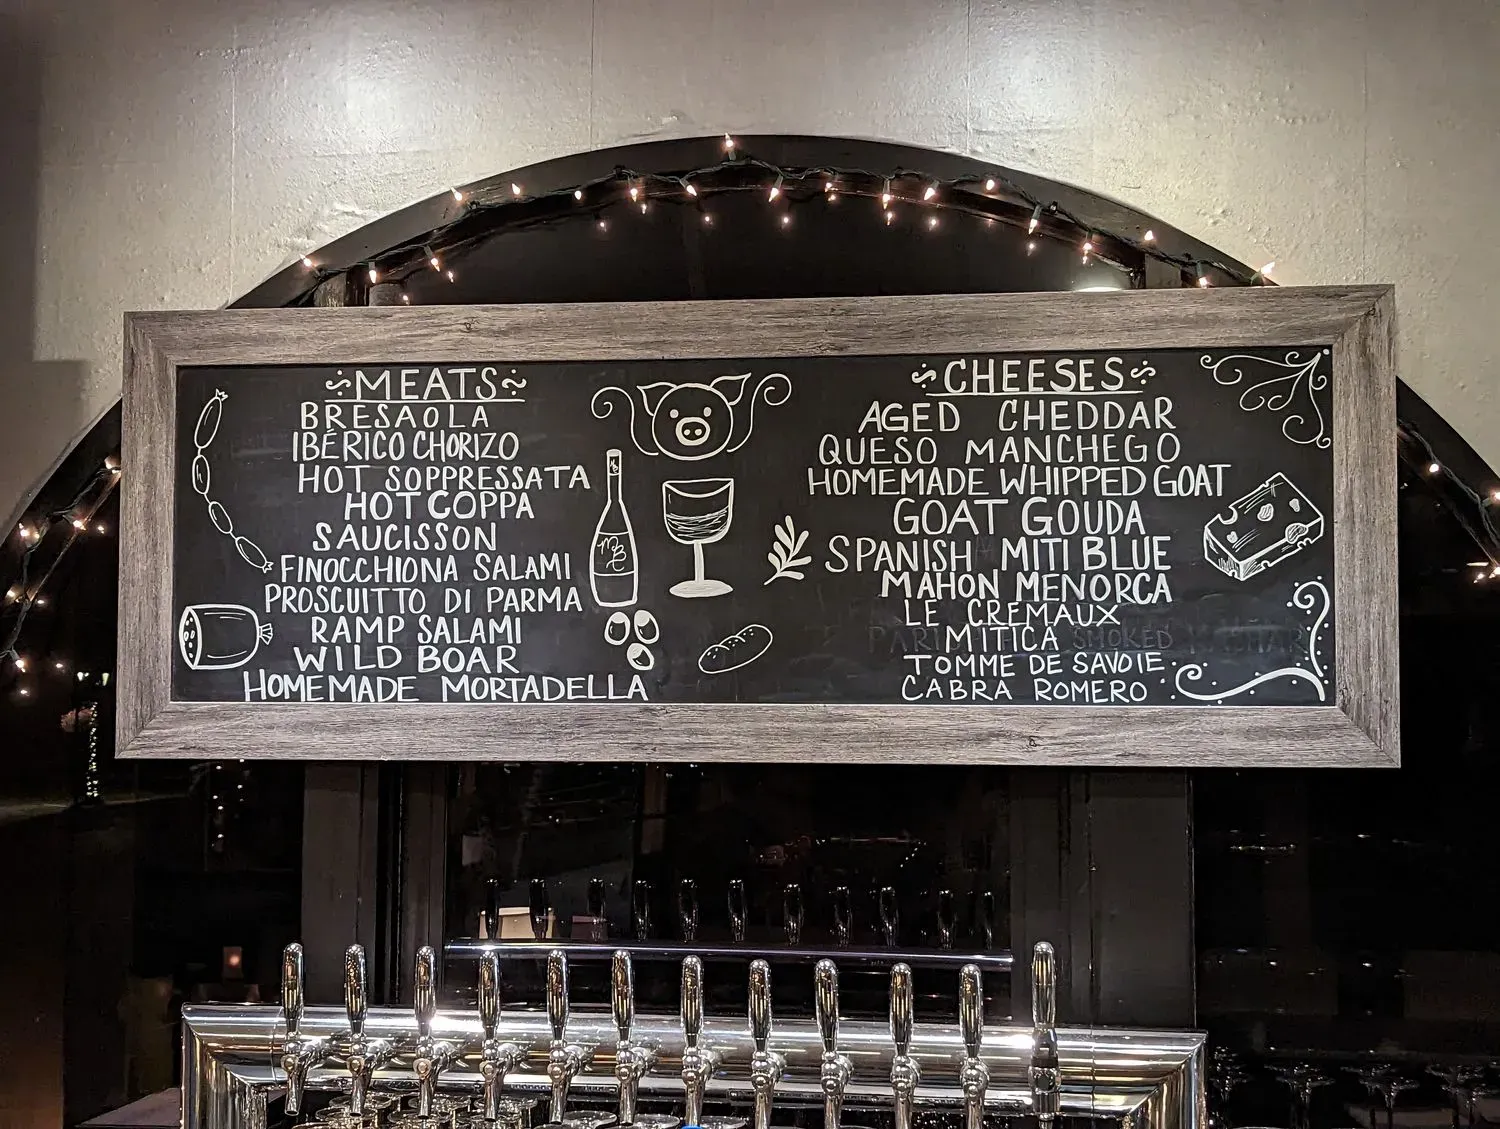 MEATS
BRESAOLA
IBÉRICO CHORIZO
HOT SOPPRESSATA
HOT COPPA
SAUCISSON
FINOCCHIONA SALAMI
PROSCUITTO DI PARMA
RAMP SALAMI
WILD BOAR
HOMEMADE MORTADELLA
CHEESES
AGED CHEDDAR
QUESO MANCHEGO
HOMEMADE WHIPPED GOAT
GOAT GOUDA
SPANISH MITI BLUE
MAHON MENORCA
LE CREMAUX
MITICA SMOKED
TOMME DE SAVOIE
CABRA ROMERO